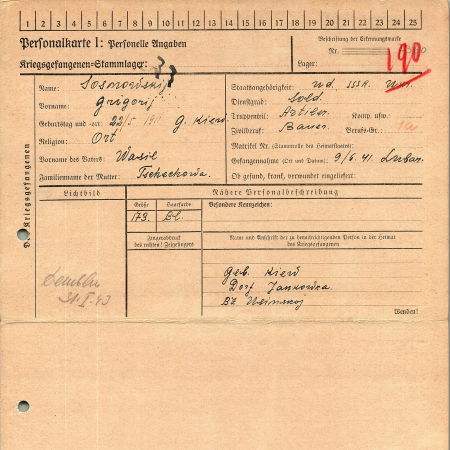 1 2 3 4 5 6 7 8 9 10 11 12 13 14 15 16 17 18 19 20 21 22 23 24 25
Personalkarte I: Personelle Angaben
Kriegsgefangenen-Stammlager:
Beschriftung der Erkennungsmarke
Nr. 190
Lager:
Des Kriegsgefangenen
Name: Sosnowskij
Vorname: Grigorij
Geburtstag und -ort: 22/5 1911 G. Kiew
Religion: Ort
Vorname des Vaters: Wasil
Familienname der Mutter: Tschechowa
Staatsangehörigkeit: Ud. SSR.
Dienstgrad: Sold.
Truppenteil: Artiler. Komp. usw.
Zivilberuf: Bauer Berufs-Gr.:
Matrikel Nr. (Stammrolle des Heimatstaates):
Gefangennahme (Ort und Datum): 9/6. 41. Lubar.
Ob gesund, krank, verwundet eingeliefert:
Lichtbild
Nähere Personalbeschreibung
Größe Haarfarbe
173. Bl.
Besondere Kennzeichen:
Fingerabdruck
des rechten! Zeigefingers
Name und Anschrift der zu benachrichtigenden Person in der Heimat
des Kriegsgefangenen
Geb. Kiew
Dorf Jankowka
Bz
31.I.43
Wenden!